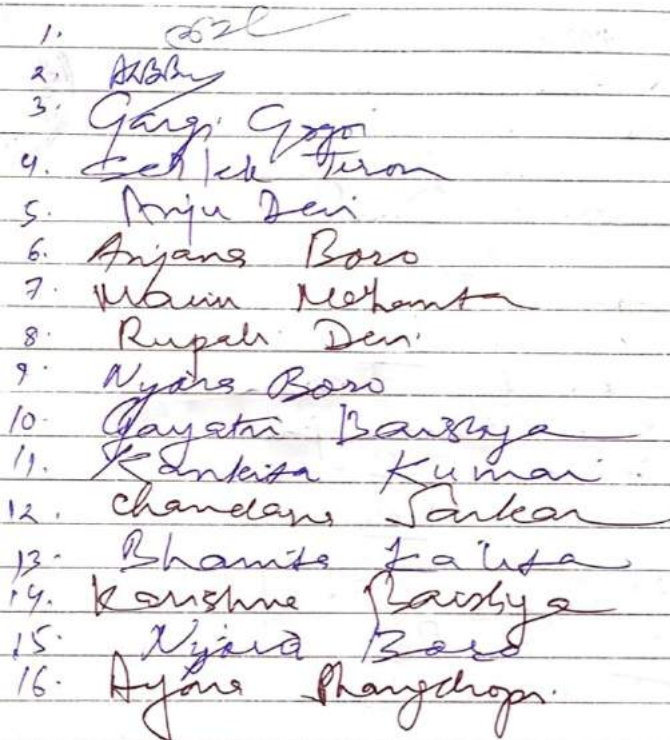 1.
2.
3. Gargi Gogoi
4. Teron
5. Anju Devi
6. Anjana Boro
7. Mahanta
8. Rupali Devi
9. Nyara Boro
10. Gayatri Baishya
11. Kankita Kumari
12. Chandana Sarkar
13. Bhanita Kalita
14. Karishma Baishya
15. Nyara Boro
16. Phangchopi